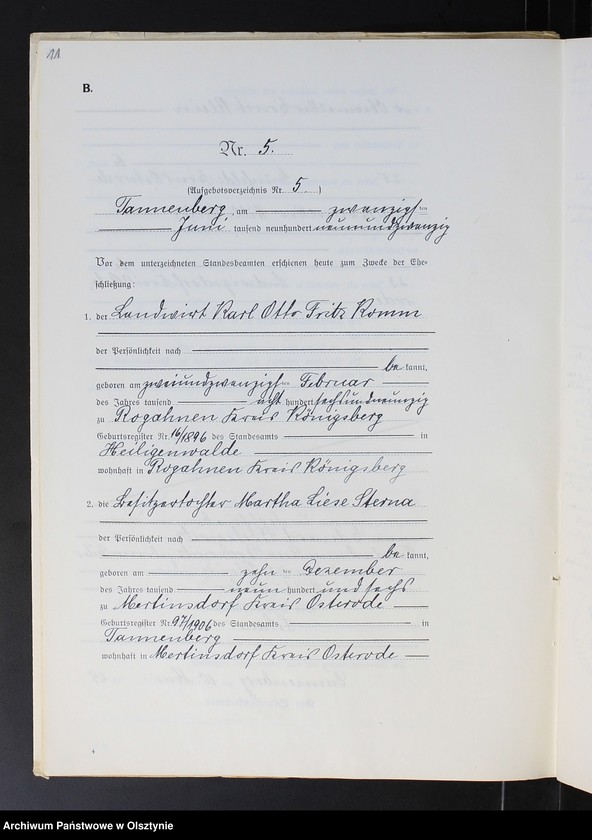 11
B.
Nr. 5.
(Aufgebotsverzeichnis Nr. 5)
Tannenberg, am zwanzigsten
Juni tausend neunhundert neunundzwanzig
Vor dem unterzeichneten Standesbeamten erschienen heute zum Zwecke der Ehe-
schließung:
1. der Landwirt Karl Otto Fritz Romm
der Persönlichkeit nach
be kannt,
geboren am zweiundzwanzigsten Februar
des Jahres tausend acht hundert sechsundneunzig
zu Rogahnen Kreis Königsberg
Geburtsregister Nr. 16/1896 des Standesamts in
Heiligenwalde
wohnhaft in Rogahnen Kreis Königsberg
2. die Besitzertochter Martha Liese Sterna
der Persönlichkeit nach
be kannt,
geboren am zehnten Dezember
des Jahres tausend neun hundert und sechs
zu Mertinsdorf Kreis Osterode
Geburtsregister Nr. 97/1906 des Standesamts in
Tannenberg
wohnhaft in Mertinsdorf Kreis Osterode
Archiwum Państwowe w Olsztynie